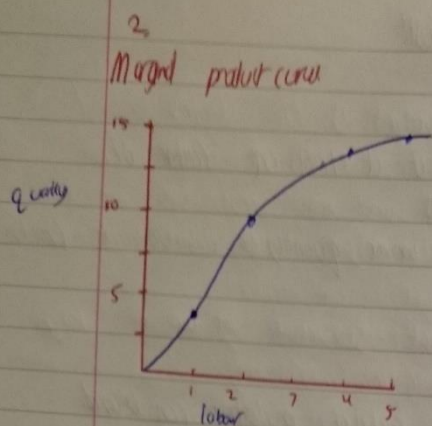 2,
Marginal product curve
15
quantity
10
5
1 2 3 4 5
labour